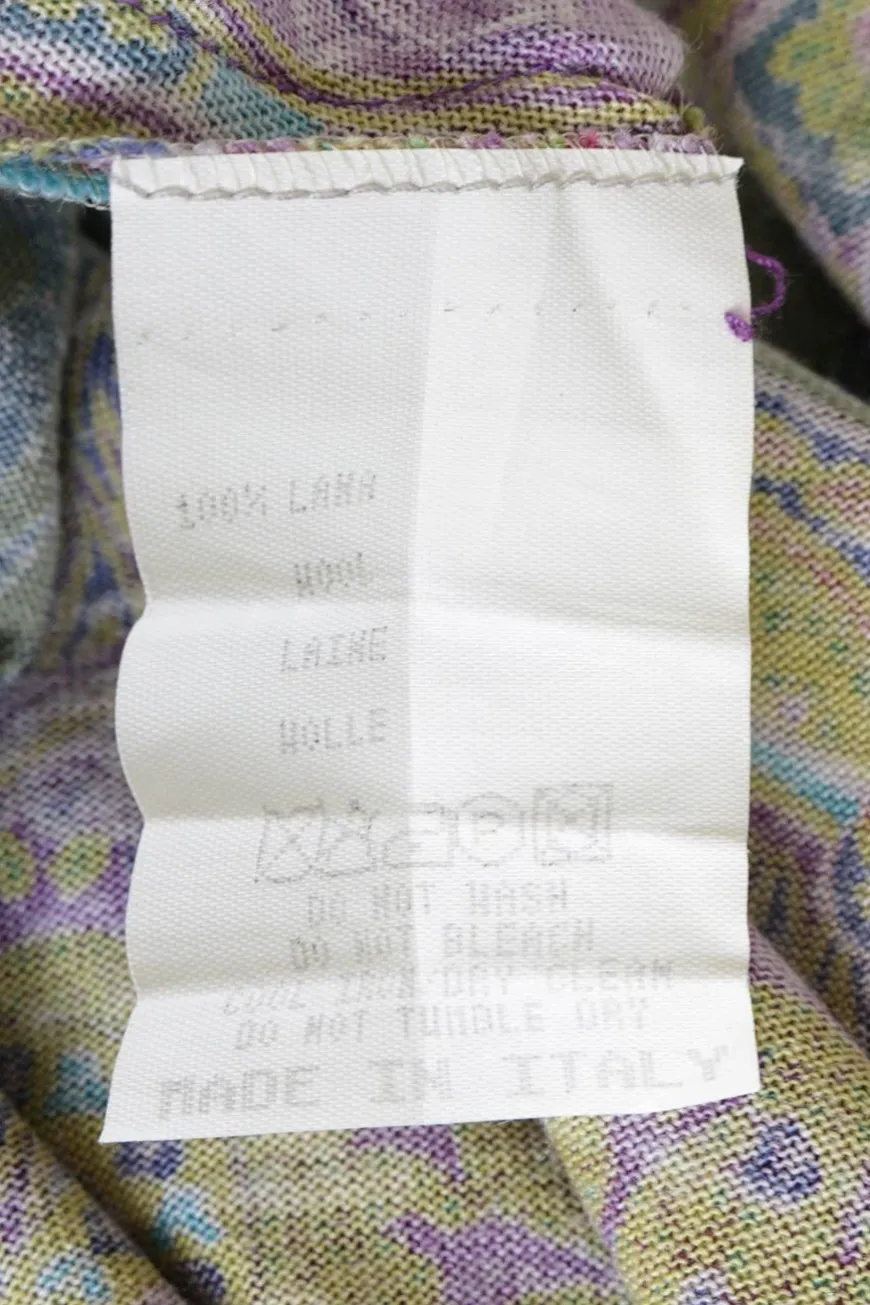 100% LANA
WOOL
LAINE
WOLLE
F
DO NOT WASH
DO NOT BLEACH
COOL IRON DRY CLEAN
DO NOT TUMBLE DRY
MADE IN ITALY